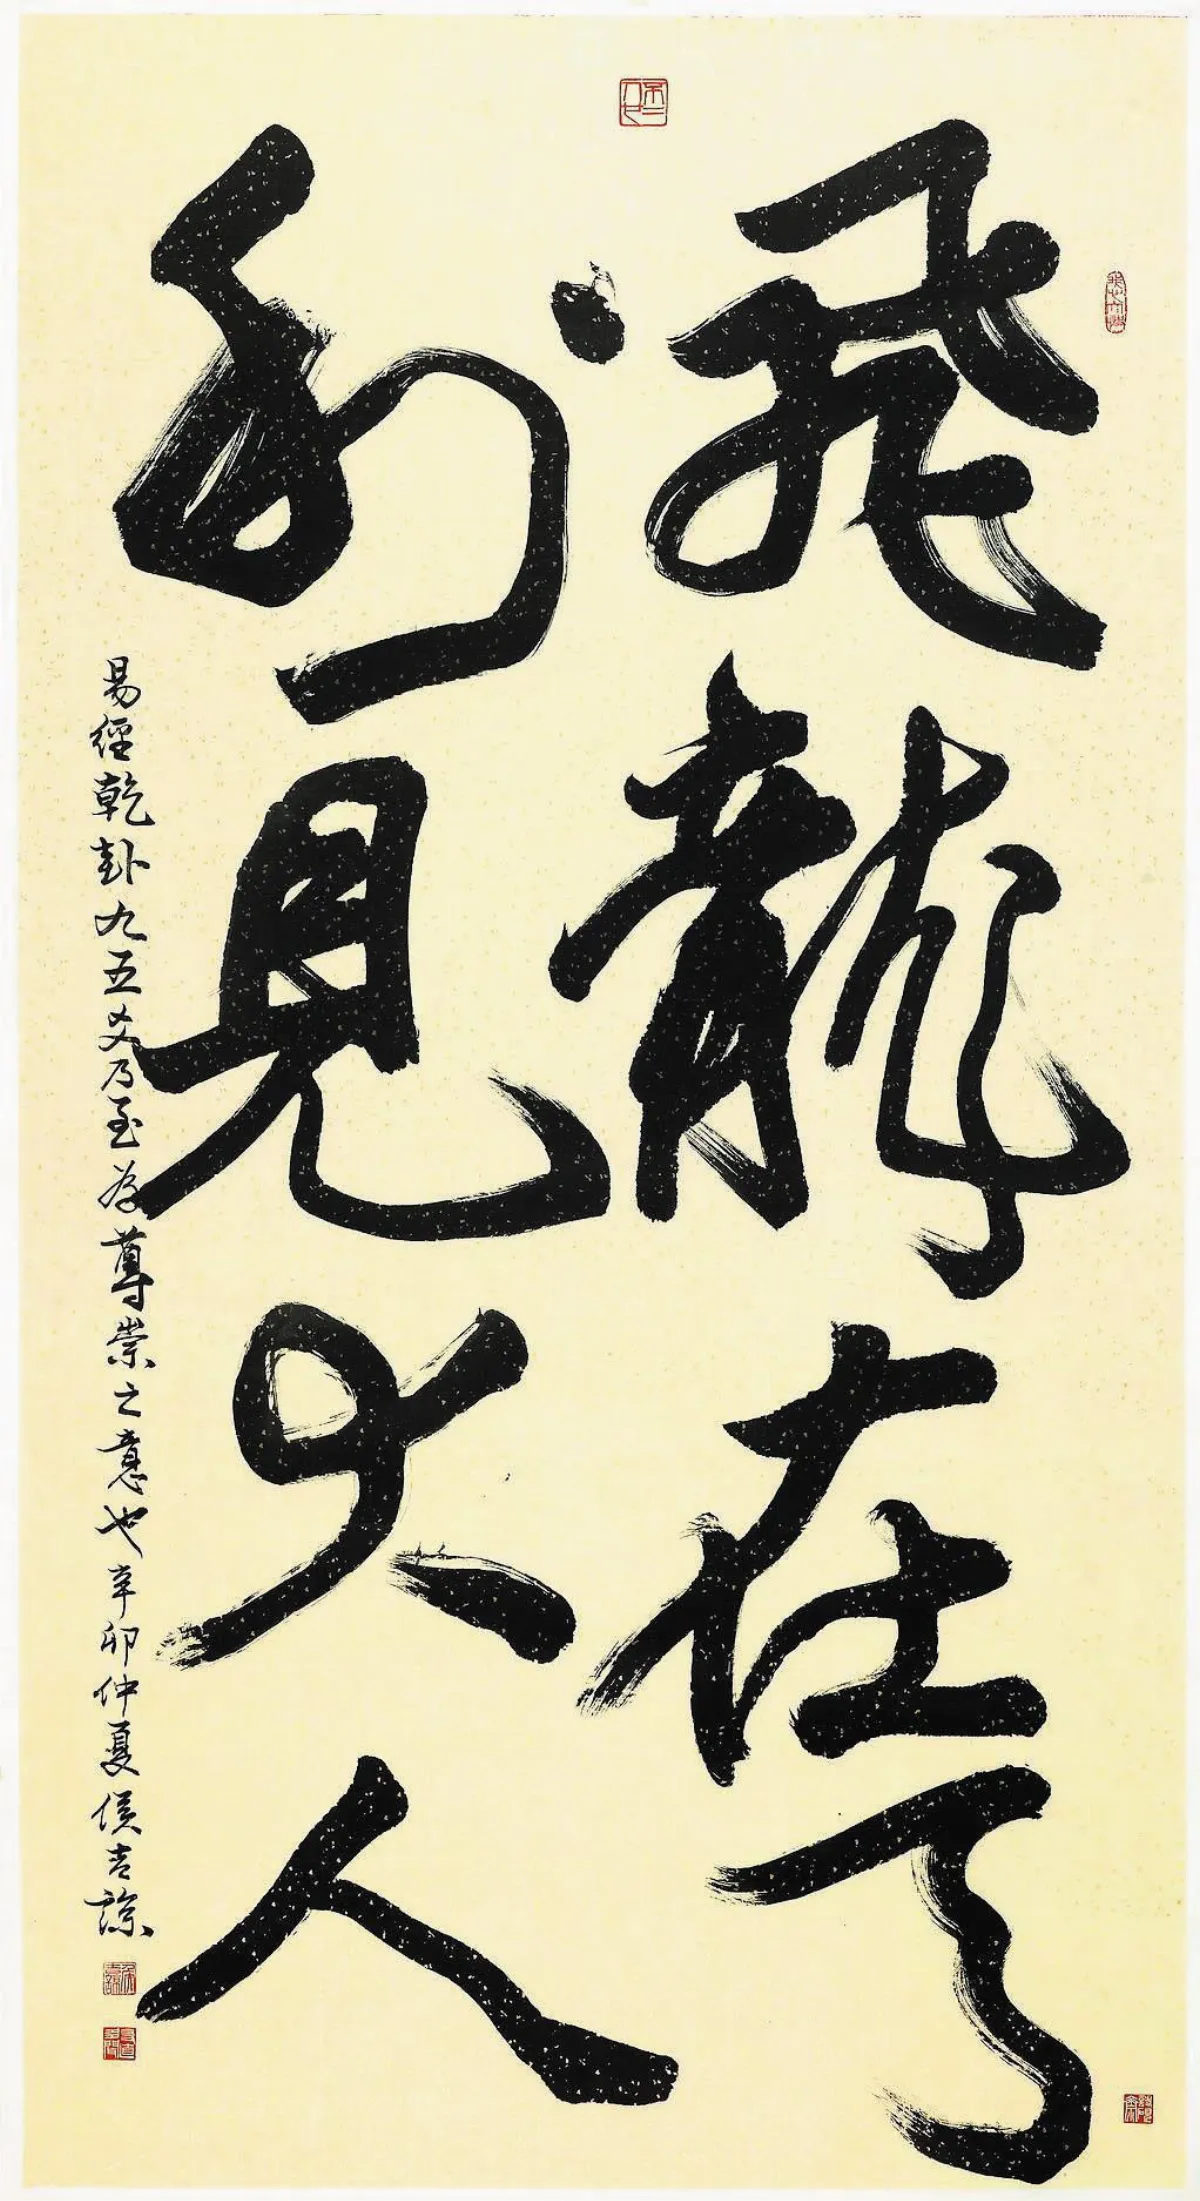 飛龍在天
利見大人
易經乾卦九五爻乃至為尊崇之意也辛卯仲夏侯吉諒